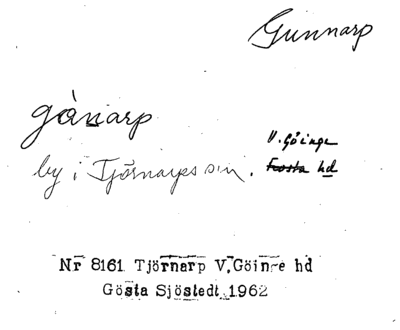 Gunnarp
gànarp
V. Göinge
by i Tjörnarps sn, Frosta hd
Nr 8161 Tjörnarp V. Göinge hd
Gösta Sjöstedt 1962